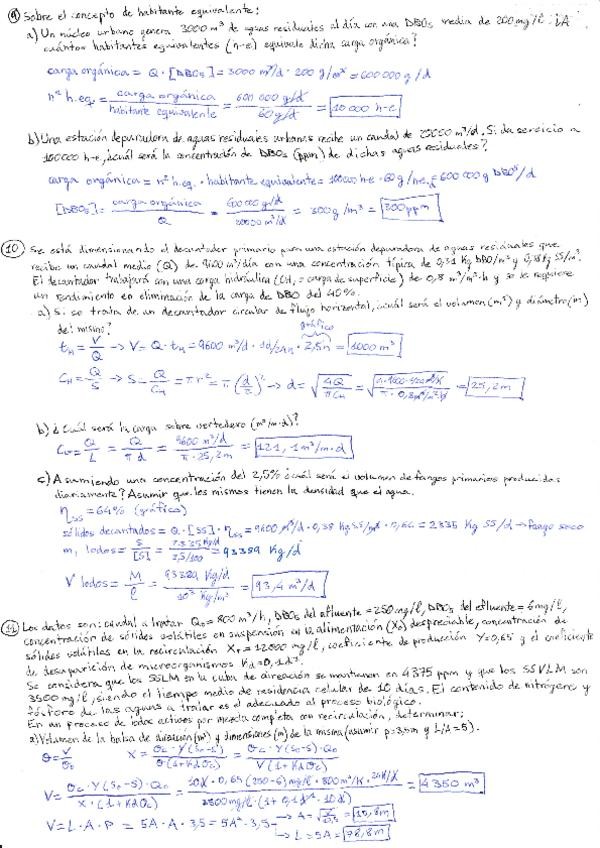 9) Sobre el concepto de habitante equivalente:
a) Un núcleo urbano genera 3000 m³ de aguas residuales al día con una DBO₅ media de 200 mg/l. ¿A
cuántos habitantes equivalentes (h-e) equivale dicha carga orgánica?
carga orgánica = Q · [DBO₅] = 3000 m³/d · 200 g/m³ = 600 000 g/d
nº h.eq. = carga orgánica / habitante equivalente = 600 000 g/d / 60 g/d = 10 000 h-e
b) Una estación depuradora de aguas residuales urbanas recibe un caudal de 20000 m³/d. Si da servicio a
100000 h-e, ¿cuál será la concentración de DBO₅ (ppm) de dichas aguas residuales?
carga orgánica = nº h.eq. · habitante equivalente = 100000 h-e · 60 g/h-e = 600000 g DBO⁵/d
[DBO₅] = carga orgánica / Q = 600000 g/d / 20000 m³/d = 300 g/m³ = 300 ppm
10) Se está dimensionando el decantador primario para una estación depuradora de aguas residuales que
recibe un caudal medio (Q) de 9600 m³/día con una concentración típica de 0,31 Kg DBO/m³ y 0,38 Kg SS/m³.
El decantador trabajará con una carga hidráulica (CH, = carga de superficie) de 0,8 m³/m²·h y se requiere
un rendimiento en eliminación de la carga de DBO del 40%.
a) Si se trata de un decantador circular de flujo horizontal, ¿cuál será el volumen (m³) y diámetro (m)
del mismo?
gráfico
t_H = V/Q → V = Q · t_H = 9600 m³/d · 1d/24h · 2,5h = 1000 m³
C_H = Q/S → S = Q/C_H = πr² = π(d/2)² → d = √(4Q/πC_H) = = 25,2 m
b) ¿Cuál será la carga sobre vertedero (m³/m·d)?
C_V = Q/L = Q/πd = 9600 m³/d / π·25,2m = 121,1 m³/m·d
c) Asumiendo una concentración del 2,5% ¿cuál será el volumen de fangos primarios producidos
diariamente? Asumir que los mismos tienen la densidad que el agua.
η_SS = 64% (gráfico)
sólidos decantados = Q · [SS] · η_SS = 9600 m³/d · 0,38 Kg SS/m³ · 0,64 = 2335 Kg SS/d → fango seco
m, lodos = S/[S] = 2335 Kg/d / 2,5/100 = 93389 Kg/d
V lodos = M/ρ = 93389 Kg/d / 10³ Kg/m³ = 93,4 m³/d
11) Los datos son: caudal a tratar Q₀ = 800 m³/h, DBO₅ del afluente = 250 mg/l, DBO₅ del efluente = 6 mg/l,
concentración de sólidos volátiles en suspensión en la alimentación (X₀) despreciable, concentración de
sólidos volátiles en la recirculación Xr = 12000 mg/l, coeficiente de producción Y = 0,65 y el coeficiente
de desaparición de microorganismos Kd = 0,1 d⁻¹.
Se considera que los SSLM en la cuba de aireación se mantienen en 4375 ppm y que los SSVLM son
3500 mg/l, siendo el tiempo medio de residencia celular de 10 días. El contenido de nitrógeno y
fósforo de las aguas a tratar es el adecuado al proceso biológico.
En un proceso de lodos activos por mezcla completa con recirculación, determinar:
a) Volumen de la balsa de aireación (m³) y dimensiones (m) de la misma (asumir p = 3,5m y L/A = 5).
θ = V/Q₀ X = θc · Y (S₀ - S) / θ (1 + Kd θc) = θc · Y (S₀ - S) · Q₀ / V (1 + Kd θc)
V = θc · Y (S₀ - S) · Q₀ / X · (1 + Kd θc) = 10d · 0,65 (250 - 6) mg/l · 800 m³/h · 24h/d / 3500 mg/l · (1 + 0,1 d⁻¹ · 10d) = 4350 m³
V = L · A · P = 5A · A · 3,5 = 5A² · 3,5 → A = = 15,8 m
→ L = 5A = 78,8 m